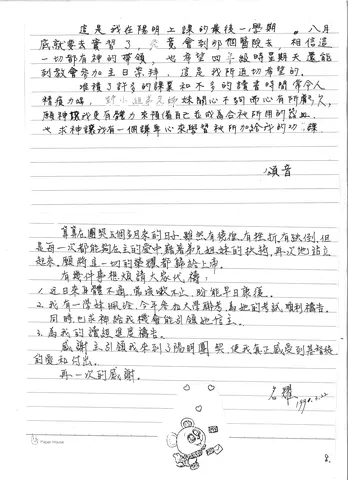 這是我在陽明上課的最後一學期。八月
底就要去實習了,竟會到那個醫院去,相信這
一切都有神的帶領,也希望四年級時星期天還能
到教會參加主日崇拜,這是我所迫切希望的。
堆積了許多的課業和不多的讀書時間常令人
精疲力竭,對小組弟兄姊妹關心不夠而心有所虧欠,
願神讓我更有體力來預備自己在成為合祂所用的器皿。
也求神讓我有一個謙卑心來學習祂所加給我的功課
頌音
算算在團契五個多月來的日子,雖然有憔悴,有挫折,有跌倒,但
是每一次都能夠在主的愛中藉著弟兄姐妹的扶持,再次地站立
起來,願將這一切的榮耀都歸給上帝。
有幾件事想煩請大家代禱:
1. 近日來身體不適,胃痛欬不止,盼能早日康復。
2. 我有一學妹珮玲,今年參加大學聯考,為她的考試順利禱告。
同時也求神給我機會能引領她信主。
3. 為我的讀經進度禱告。
感謝主引領我來到了陽明團契,使我真正感受到基督徒
的愛和付出。
再一次的感謝。
名耀
1990.2.22
Paper House
8.